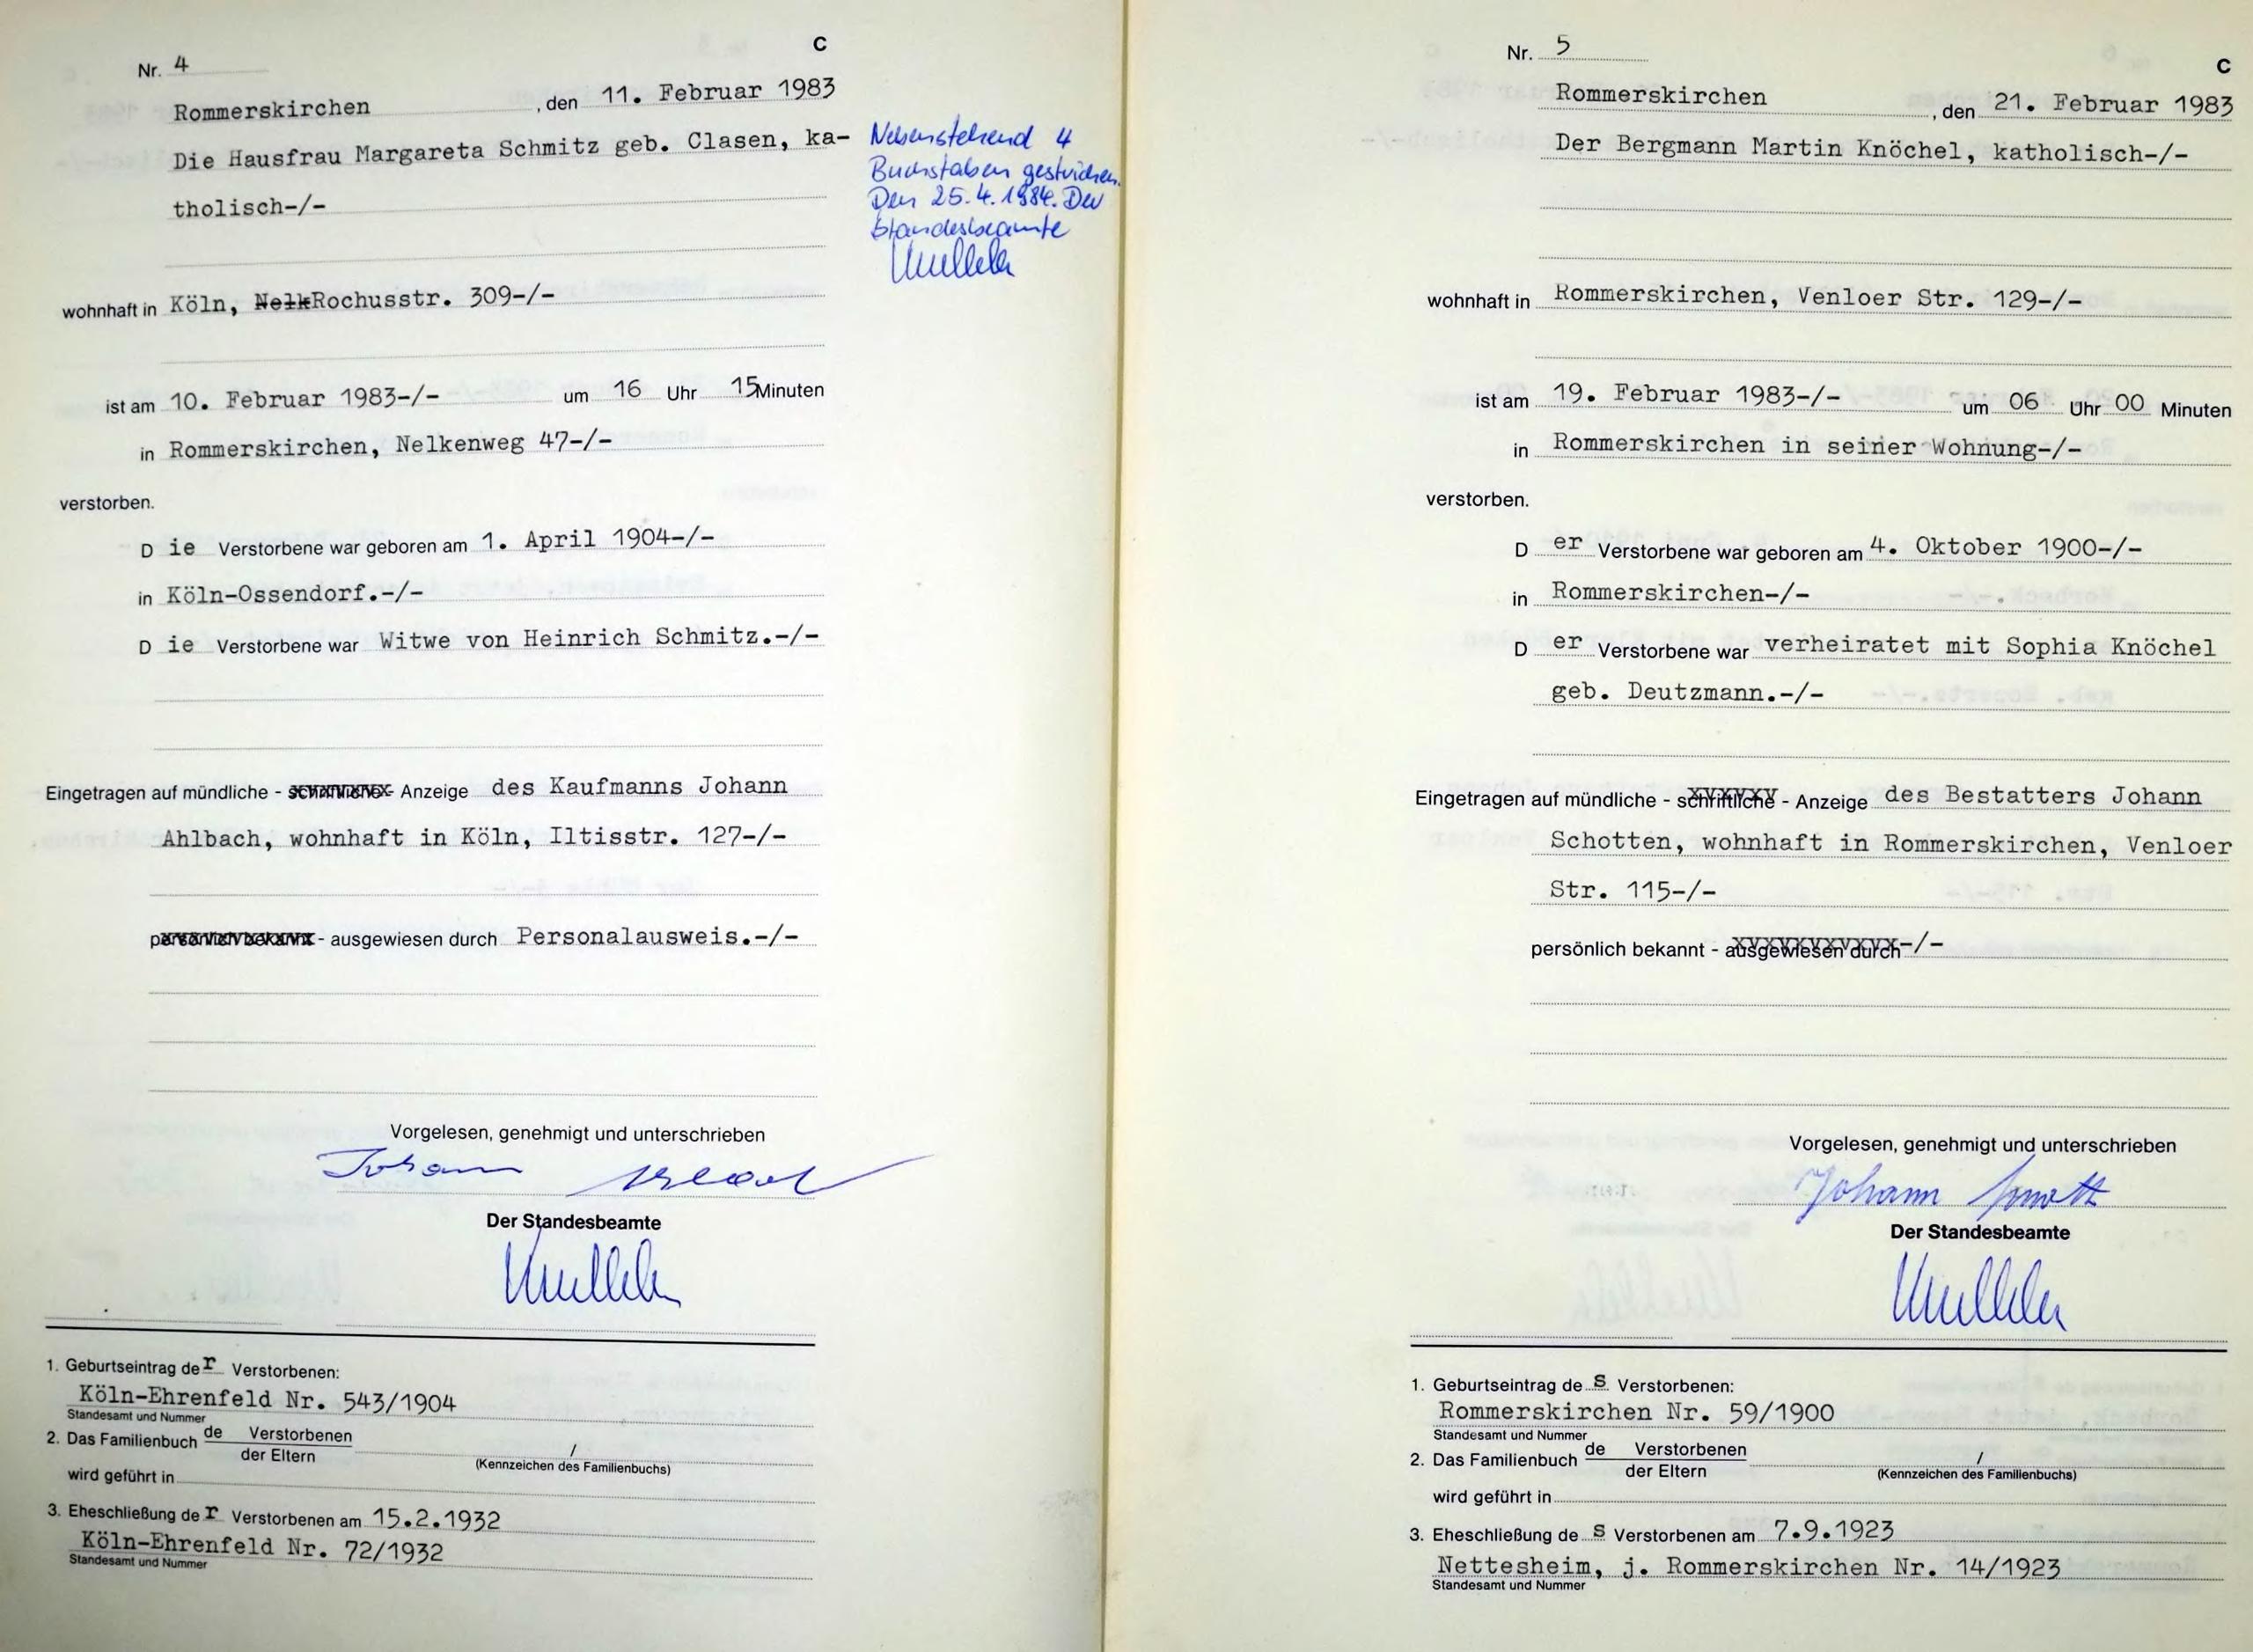 C
Nr. 4
Rommerskirchen , den 11. Februar 1983
Die Hausfrau Margareta Schmitz geb. Clasen, ka-
tholisch-/-
wohnhaft in Köln, NelkRochusstr. 309-/-
ist am 10. Februar 1983-/- um 16 Uhr 15 Minuten
in Rommerskirchen, Nelkenweg 47-/-
verstorben.
D ie Verstorbene war geboren am 1. April 1904-/-
in Köln-Ossendorf.-/-
D ie Verstorbene war Witwe von Heinrich Schmitz.-/-
Eingetragen auf mündliche - schriftliche - Anzeige des Kaufmanns Johann
Ahlbach, wohnhaft in Köln, Iltisstr. 127-/-
persönlich bekannt - ausgewiesen durch Personalausweis.-/-
Vorgelesen, genehmigt und unterschrieben
Johann
Der Standesbeamte
1. Geburtseintrag der Verstorbenen:
Köln-Ehrenfeld Nr. 543/1904
Standesamt und Nummer
2. Das Familienbuch de Verstorbenen
der Eltern
/
(Kennzeichen des Familienbuchs)
wird geführt in
3. Eheschließung der Verstorbenen am 15.2.1932
Köln-Ehrenfeld Nr. 72/1932
Standesamt und Nummer
Nebenstehend 4
Buchstaben gestrichen.
Den 25.4.1984. Der
Standesbeamte
Nr. 5
C
Rommerskirchen , den 21. Februar 1983
Der Bergmann Martin Knöchel, katholisch-/-
wohnhaft in Rommerskirchen, Venloer Str. 129-/-
ist am 19. Februar 1983-/- um 06 Uhr 00 Minuten
in Rommerskirchen in seiner Wohnung-/-
verstorben.
D er Verstorbene war geboren am 4. Oktober 1900-/-
in Rommerskirchen-/-
D er Verstorbene war verheiratet mit Sophia Knöchel
geb. Deutzmann.-/-
Eingetragen auf mündliche - schriftliche - Anzeige des Bestatters Johann
Schotten, wohnhaft in Rommerskirchen, Venloer
Str. 115-/-
persönlich bekannt - ausgewiesen durch-/-
Vorgelesen, genehmigt und unterschrieben
Johann
Der Standesbeamte
1. Geburtseintrag des Verstorbenen:
Rommerskirchen Nr. 59/1900
Standesamt und Nummer
2. Das Familienbuch de Verstorbenen
der Eltern
/
(Kennzeichen des Familienbuchs)
wird geführt in
3. Eheschließung des Verstorbenen am 7.9.1923
Nettesheim, j. Rommerskirchen Nr. 14/1923
Standesamt und Nummer